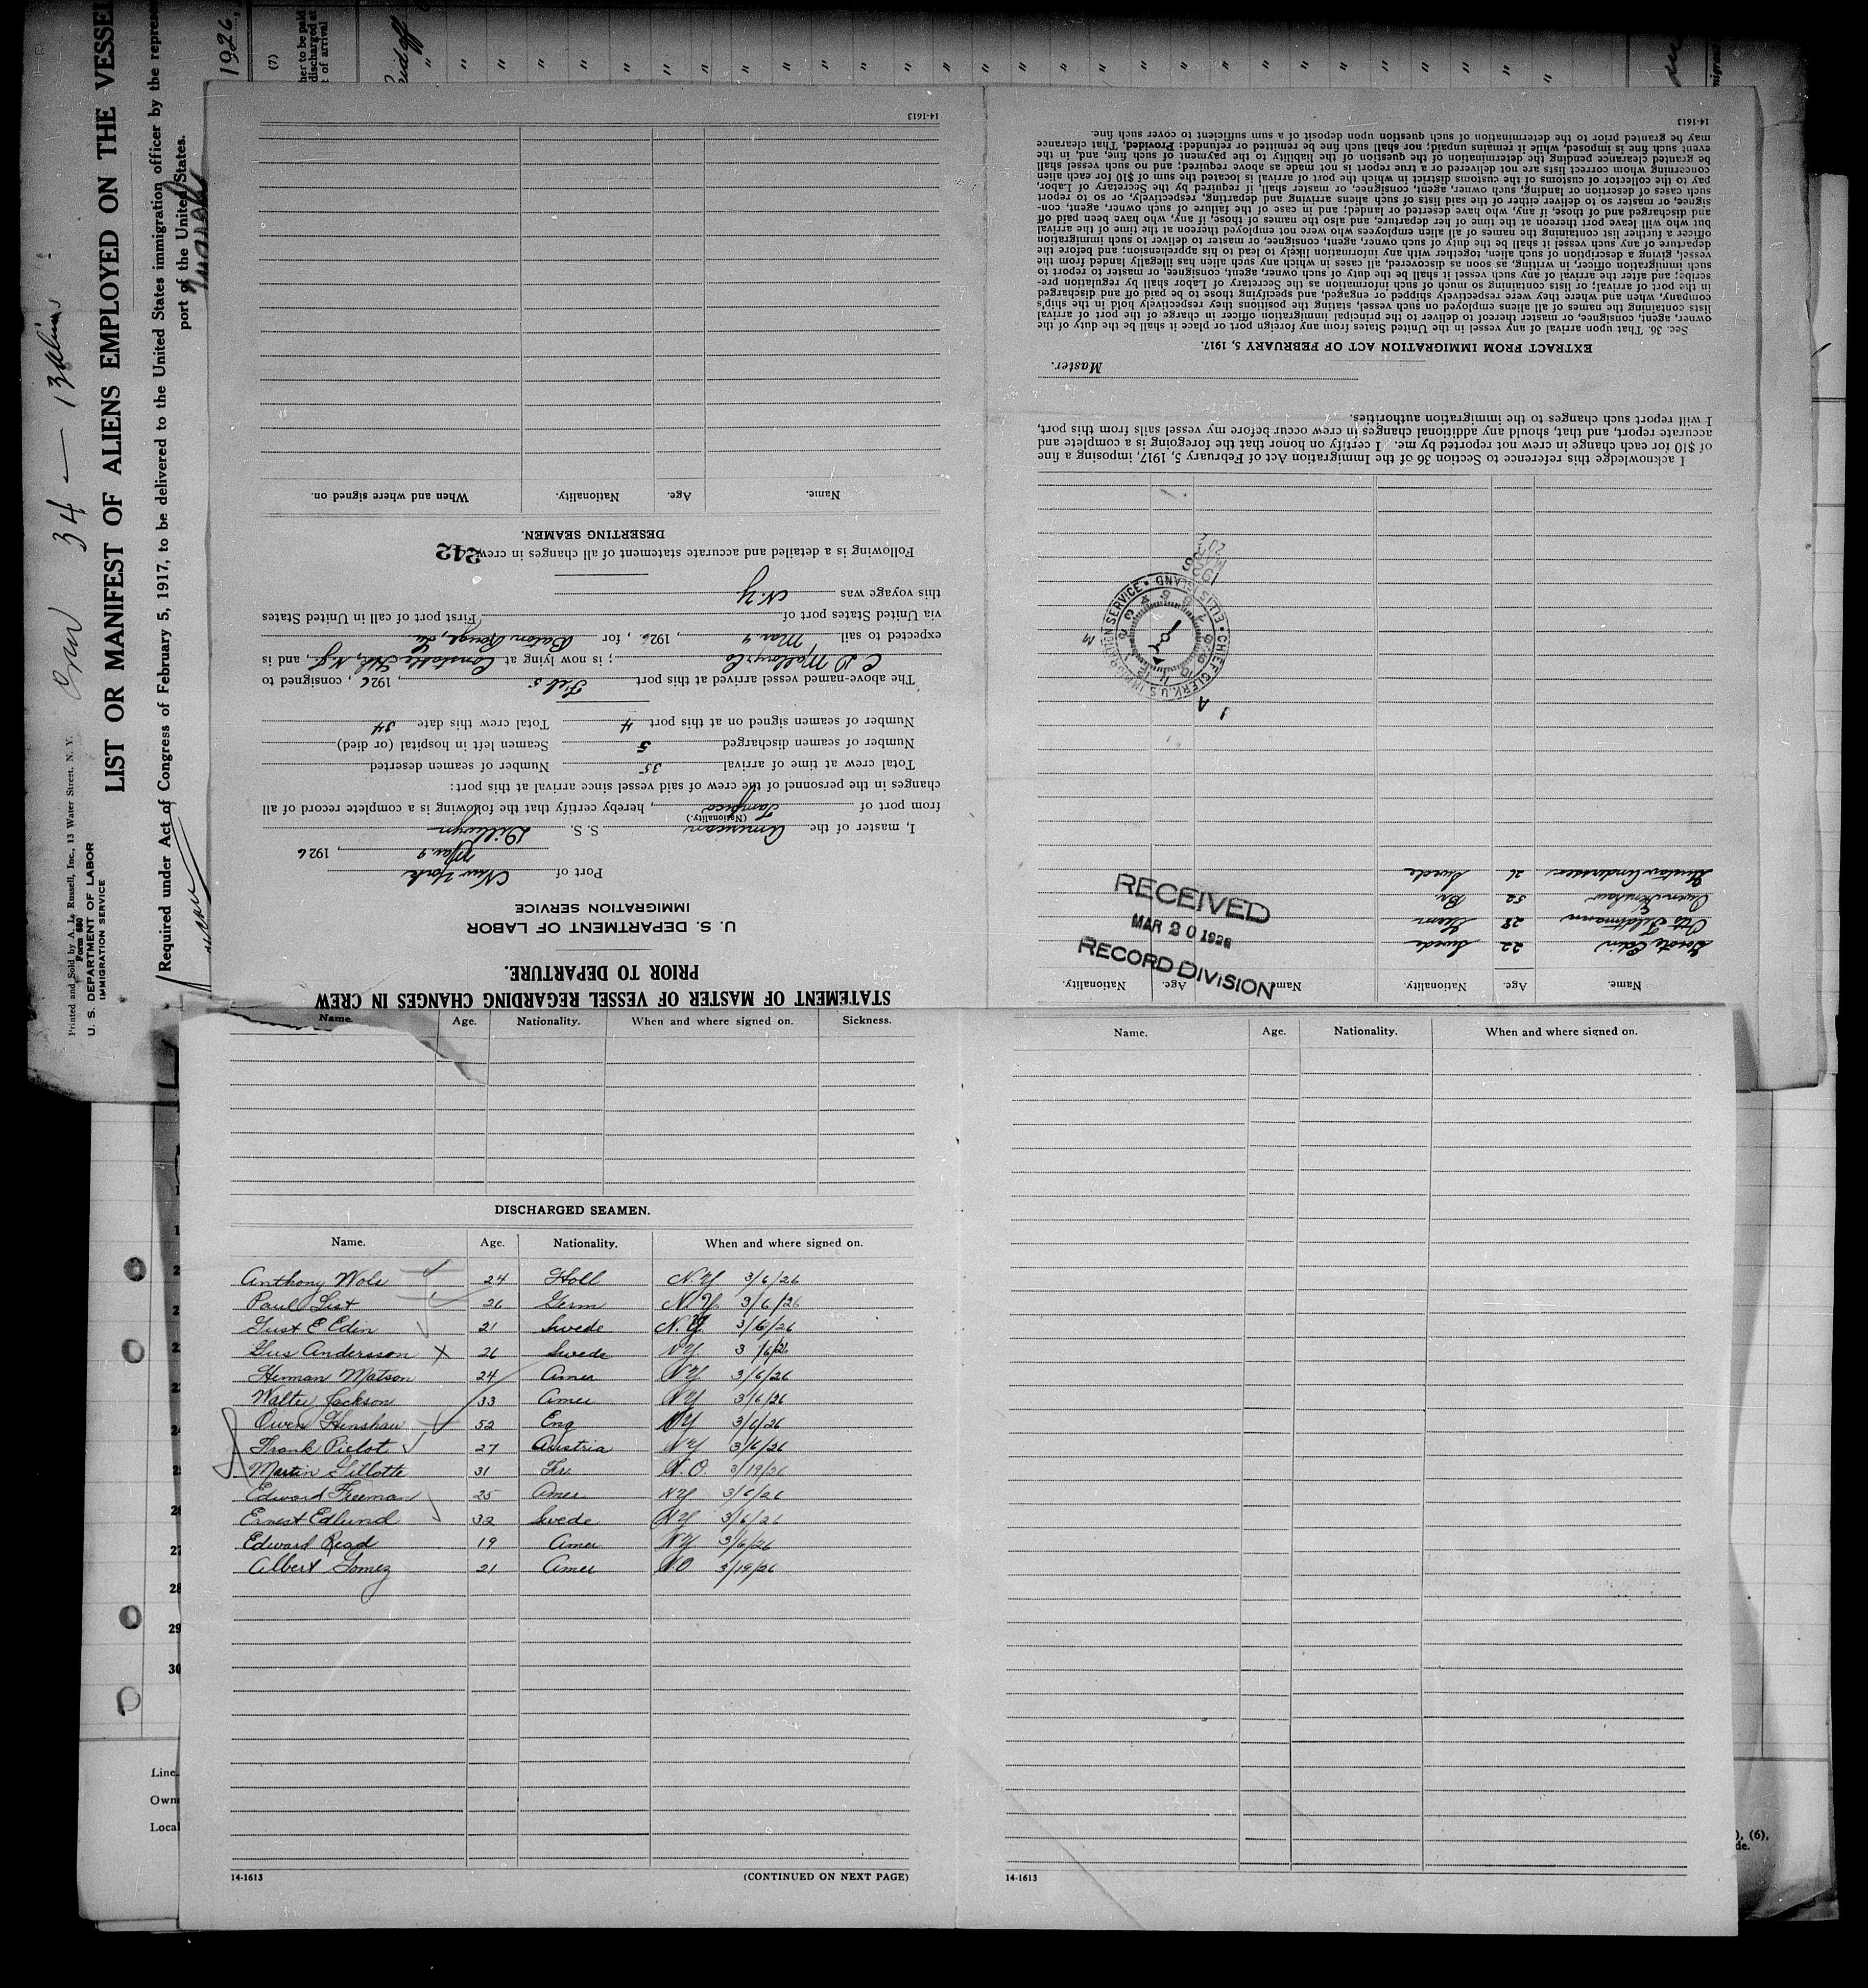 1926,
(7)
her to be paid
discharged at
t of arrival
Crew 34 — 13 aliens
Printed and Sold by A. L. Russell, Inc., 13 Water Street, N. Y.
Form 680
U. S. DEPARTMENT OF LABOR
IMMIGRATION SERVICE
LIST OR MANIFEST OF ALIENS EMPLOYED ON THE VESSEL
Required under Act of Congress of February 5, 1917, to be delivered to the United States immigration officer by the represe
port of the United States.
STATEMENT OF MASTER OF VESSEL REGARDING CHANGES IN CREW
PRIOR TO DEPARTURE.
U. S. DEPARTMENT OF LABOR
IMMIGRATION SERVICE
Port of New York
Mar. 9, 1926
I, master of the American S. S. Dilwyn
(Nationality.)
from port of Tampico, hereby certify that the following is a complete record of all
changes in the personnel of the crew of said vessel since arrival at this port:
Total crew at time of arrival 35 Number of seamen deserted
Number of seamen discharged 5 Seamen left in hospital (or died)
Number of seamen signed on at this port 4 Total crew this date 34
The above-named vessel arrived at this port Feb 5, 1926, consigned to
C D Mallory Co; is now lying at Constable Hk, N.J., and is
expected to sail Mar. 9, 1926, for Baton Rouge, La
via United States port of First port of call in United States
this voyage was N.Y
Following is a detailed and accurate statement of all changes in crew:
242
DESERTING SEAMEN.
Name. Age. Nationality. When and where signed on.
14-1613
Name. Age. Nationality. Name. Age. Nationality.
Goste Eden 22 Swede
Otto Feldtmann 28 Germ
Owen Henshaw 52 Br
Gustav Anderssen 26 Swede
RECEIVED
MAR 20 1926
RECORD DIVISION
CHIEF CLERK, U.S. IMMIGRATION SERVICE • ELLIS ISLAND •
1926
MAR
20
I acknowledge this reference to Section 36 of the Immigration Act of February 5, 1917, imposing a fine
of $10 for each change in crew not reported by me. I certify on honor that the foregoing is a complete and
accurate report, and that, should any additional changes in crew occur before my vessel sails from this port,
I will report such changes to the immigration authorities.
Master.
EXTRACT FROM IMMIGRATION ACT OF FEBRUARY 5, 1917.
Sec. 36. That upon arrival of any vessel in the United States from any foreign port or place it shall be the duty of the
owner, agent, consignee, or master thereof to deliver to the principal immigration officer in charge of the port of arrival
lists containing the names of all aliens employed on such vessel, stating the positions they respectively hold in the ship's
company, when and where they were respectively shipped or engaged, and specifying those to be paid off and discharged
in the port of arrival; or lists containing so much of such information as the Secretary of Labor shall by regulation pre-
scribe; and after the arrival of any such vessel it shall be the duty of such owner, agent, consignee, or master to report to
such immigration officer, in writing, as soon as discovered, all cases in which any such alien has illegally landed from the
vessel, giving a description of such alien, together with any information likely to lead to his apprehension; and before the
departure of any such vessel it shall be the duty of such owner, agent, consignee, or master to deliver to such immigration
officer a further list containing the names of all alien employees who were not employed thereon at the time of the arrival
but who will leave port thereon at the time of her departure, and also the names of those, if any, who have been paid off
and discharged and of those, if any, who have deserted or landed; and in case of the failure of such owner, agent, con-
signee, or master so to deliver either of the said lists of such aliens arriving and departing, respectively, or so to report
such cases of desertion or landing, such owner, agent, consignee, or master shall, if required by the Secretary of Labor,
pay to the collector of customs of the customs district in which the port of arrival is located the sum of $10 for each alien
concerning whom correct lists are not delivered or a true report is not made as above required; and no such vessel shall
be granted clearance pending the determination of the question of the liability to the payment of such fine, and, in the
event such fine is imposed, while it remains unpaid; nor shall such fine be remitted or refunded: Provided, That clearance
may be granted prior to the determination of such question upon deposit of a sum sufficient to cover such fine.
14-1613
Name. Age. Nationality. When and where signed on. Sickness.
DISCHARGED SEAMEN.
Name. Age. Nationality. When and where signed on.
Anthony Wols 24 Holl N.Y 3/6/26
Paul List 26 Germ N.Y. 3/6/26
Gust E Eden 21 Swede N.Y. 3/6/26
Gus Andersson X 26 Swede NY 3/6/26
Herman Matson 24 Amer NY 3/6/26
Walter Jackson 33 Amer NY 3/6/26
Owen Henshaw 52 Eng NY 3/6/26
Frank Pielot 27 Austria NY 3/6/26
Martin Gillotte 31 Fr. N.O. 3/19/26
Edward Freeman 25 Amer NY 3/6/26
Ernest Edlund 32 Swede NY 3/6/26
Edward Read 19 Amer NY 3/6/26
Albert Gomez 21 Amer NO 3/19/26
14-1613 (CONTINUED ON NEXT PAGE)
Name. Age. Nationality. When and where signed on.
14-1613
27
28
29
30
Line
Own
Local
), (6),
de.